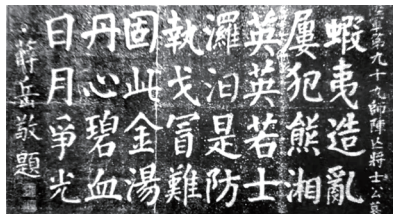 陸軍第九十九師陣亡將士公墓
蝦夷造亂
屢犯熊湘
英英若士
灑汨是防
執戈冒難
固此金湯
丹心碧血
日月爭光
蔣岳敬題